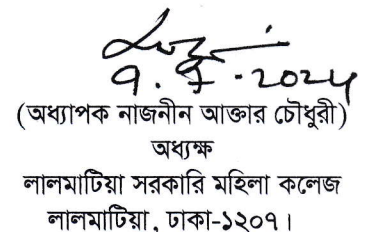 (অধ্যাপক নাজনীন আক্তার চৌধুরী)
অধ্যক্ষ
লালমাটিয়া সরকারি মহিলা কলেজ
লালমাটিয়া, ঢাকা-১২০৭।